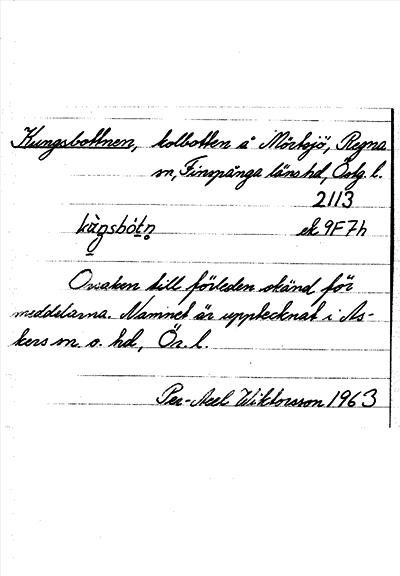 Kungsbottnen, kolbotten å Mörtsjö, Regna
sn, Finspånga läns hd, Östg. l.
2113
ek 9F7h
Orsaken till förleden okänd för
meddelarna. Namnet är upptecknat i As-
kers sn. o. hd, Ör. l.
Per-Axel Wiktorsson 1963